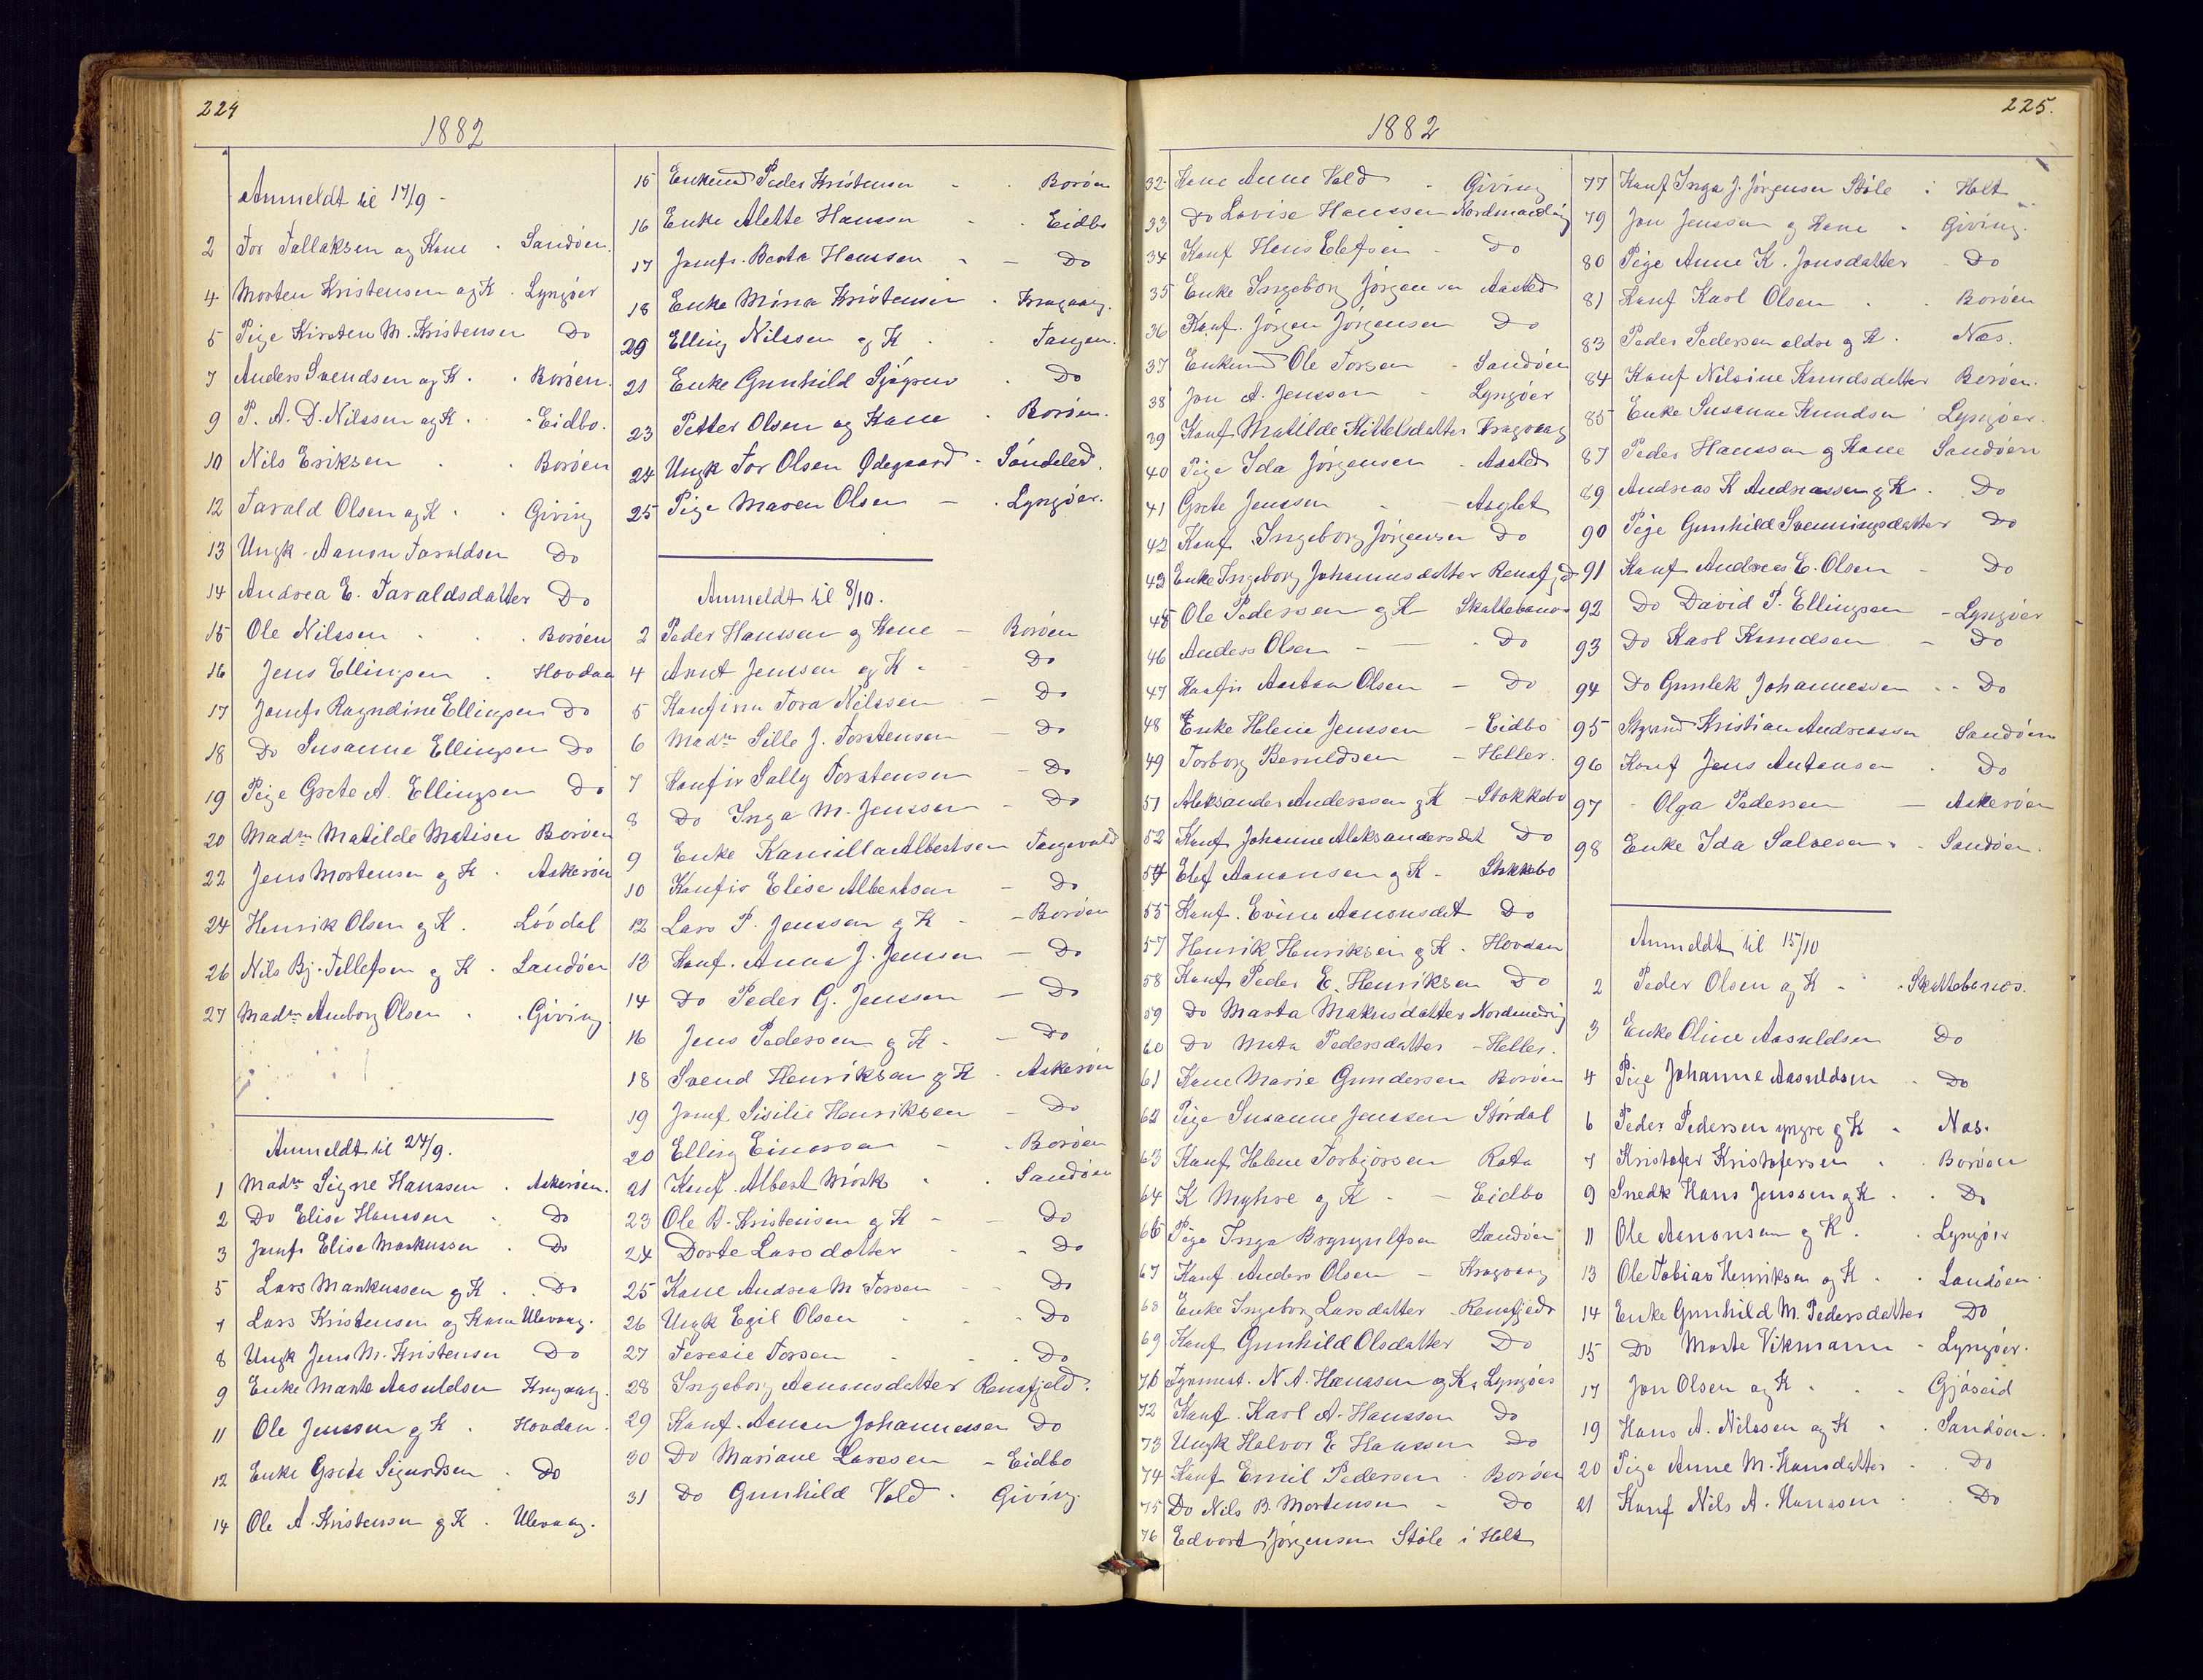 224
1882
Anmeldt til 17/9 -
2 Tor Tallaksen og Kone - Sandöen
4 Morten Kristensen og K - Lyngöer
5 Pige Kirsten M. Kristensen Do
7 Anders Svendsen og K - Boröen
9 P. A. D. Nilssen og K - Eidbo.
10 Nils Eriksen - Boröen
12 Tarald Olsen og K - Giving
13 Ungk. Aanon Taraldsen Do
14 Andrea E. Taraldsdatter Do
15 Ole Nilssen - Boröen
16 Jens Ellingsen - Hovdan
17 Jomfr Ragndine Ellingsen Do
18 Do Susanne Ellingsen Do
19 Pige Grete A. Ellingsen Do
20 Madm Matilde Matisen Boröen
22 Jens Mortensen og K - Askeröen
24 Henrik Olsen og K. Lövdal
26 Nils Bj. Tellefsen og K. Sandöen
27 Madm Amborg Olsen - Giving
Anmeldt til 24/9.
1 Madm Signe Hanssen - Askeröen.
2 Do Elise Hanssen - Do
3 Jomfr Elise Markussen - Do
5 Lars Markussen og K - Do
7 Lars Kristensen og Kone Ulevaag.
8 Ungk Jens M. Kristensen Do
9 Enke Marte Aasuldsen Kragvaag.
11 Ole Jenssen og K - Hovdan.
12 Enke Grete Sigurdsen - Do
14 Ole A. Kristensen og K - Ulevaag.
15 Enkemd Peder Kristensen - Boröen
16 Enke Alette Hanssen - Eidbo
17 Jomfr. Berte Hanssen - Do
18 Enke Mina Kristensen - Kragvaag.
20 Elling Nilssen og K - Tangen.
21 Enke Gunhild Sjögren - Do
23 Petter Olsen og Kone - Boröen.
24 Ungk Tor Olsen Ødegaard - Söndeled.
25 Pige Maren Olsen - Lyngöer.
Anmeldt til 8/10.
2 Peder Hanssen og Kone - Boröen
4 Arnt Jenssen og K - Do
5 Konfirm Tora Nilssen - Do
6 Madm Sille J. Torstensen - Do
7 Konfir Sally Torstensen - Do
8 Do Inga M. Jenssen - Do
9 Enke Kamilla Albertsen Tangevald
10 Konfir Elise Albertsen - Do
12 Lars P. Jenssen og K - Boröen
13 Konf. Anna J. Jenssen - Do
14 Do Peder G. Jenssen - Do
16 Jens Pedersen og K - Do
18 Svend Henriksen og K - Askeröen
19 Jomf. Sisilie Henriksen - Do
20 Elling Einarsen - Boröen
21 Konf. Albert Mörk - Sandöen
23 Ole B. Kristensen og K - Do
24 Dorte Larsdatter - Do
25 Kone Andrea M Torsen - Do
26 Ungk Egil Olsen - Do
27 Teresie Torsen - Do
28 Ingeborg Aanonsdatter Rensfjeld.
29 Konf. Aanon Johannessen Do
30 Do Mariane Larssen - Eidbo
31 Do Gunhild Vold - Giving.
225.
1882
32 Kone Anne Vold - Giving
33 Do Lovise Hanssen Nordmanding
34 Konf Hans Elefsen - Do
35 Enke Ingeborg Jörgensen Aasted
36 Konf. Jörgen Jörgensen Do
37 Enkemd Ole Torsen - Sandöen
38 Jon A. Jenssen - Lyngöer
39 Konf. Matilde Kittelsdatter Kragvaag
40 Pige Ida Jörgensen - Aasted
41 Grete Jenssen - Asglet
42 Konf Ingeborg Jörgensen Do
43 Enke Ingeborg Johannesdatter Rensfjd
45 Ole Pedersen og K Skattebonæs
46 Anders Olsen - Do
47 Konfir Aastan Olsen - Do
48 Enke Helene Jenssen - Eidbo
49 Torborg Beruldsen - Heller.
51 Aleksander Anderssen og K - Stokkebo
52 Konf Johanne Aleksandersdat Do
54 Elef Aanonsen og K - Stokkebo
55 Konf. Evine Aanonsdat Do
57 Henrik Henriksen og K. Hovdan
58 Konf Peder E. Henriksen Do
59 Do Marta Makusdatter Nordmeding
60 Do Mata Pedersdatter - Heller.
61 Kone Marie Gundersen Boröen
62 Pige Susanne Jenssen Stördal
63 Konf Helene Torbjörsen Rota
64 K Myhre og K - Eidbo
66 Pige Inga Brynyulfsen Sandöen
67 Konf. Anders Olsen - Kragvaag
68 Enke Ingeborg Larsdatter Rensfjedr
69 Konf Gunhild Olsdatter Do
71 Fyrmest. N. A. Hanssen og K. Lyngöer
72 Konf. Karl A. Hanssen Do
73 Ungk Halvor E Hanssen Do
74 Konf Emil Pedersen - Boröen
75 Do Nils B. Mortensen - Do
76 Edvart Jörgensen Støle i Holt
77 Konf Inga J. Jörgensen Støle i Holt
79 Jon Jenssen og Kone - Giving.
80 Pige Anne K. Jonsdatter - Do
81 Konf Karl Olsen - Boröen
83 Peder Pedersen eldre og K. Næs.
84 Konf Nilsine Knudsdatter Boröen.
85 Enke Susanne Knudsen Lyngöer.
87 Peder Hanssen og Kone Sandöen
89 Andreas K Andreassen og K. Do
90 Pige Gunhild Svenningsdatter Do
91 Konf Andreas E. Olsen - Do
92 Do David P. Ellingsen - Lyngöer
93 Do Karl Knudsen - Do
94 Do Gunlek Johannessen - Do
95 Kristian Andreassen Sandöen
96 Konf Jens Antonsen - Do
97 - Olga Pedersen - Askeröen
98 Enke Ida Salvesen - Sandöen.
Anmeldt til 15/10
2 Peder Olsen og K - Skattebonæs.
3 Enke Oline Aasuldsen Do
4 Pige Johanne Aasuldsen - Do
6 Peder Pedersen yngre og K - Næs.
7 Kristofer Kristofersen - Boröen
9 Snedk Hans Jenssen og K - Do
11 Ole Aanonsen og K - Lyngöer
13 Ole Tobias Henriksen og K - Sandöen
14 Enke Gunhild M. Pedersdatter Do
15 Do Marte Vikmann - Lyngöer.
17 Jon Olsen og K - Gjöseid
19 Hans A. Nilssen og K - Sandöen.
20 Pige Anne M. Hansdatter - Do
21 Konf Nils A. Hanssen - Do